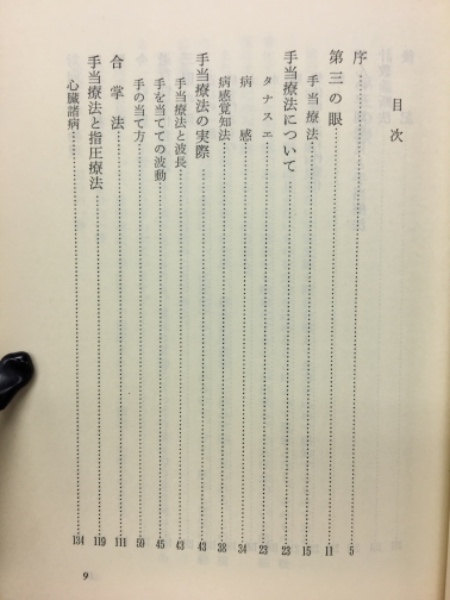 目次
序 5
第三の眼 11
手当療法 15
手当療法について 23
タナスエ 23
病感 34
病感覚知法 38
手当療法の実際 43
手当療法と波長 43
手を当てての波動 45
手の当て方 59
合掌法 111
手当療法と指圧療法 119
心臓諸病 134
9